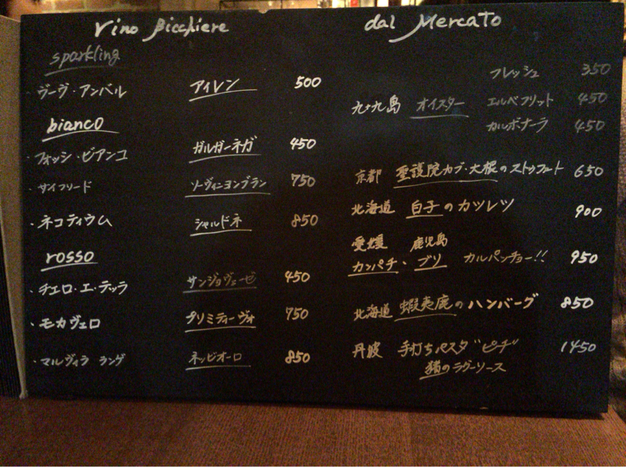 Vino Bicchiere
sparkling
・ヴーヴ・アンバル アイレン 500
bianco
・フォッシ・ビアンコ ガルガーネガ 450
・サイフリード ソーヴィニヨンブラン 750
・ネコティウム シャルドネ 850
rosso
・チェロ・エ・テッラ サンジョヴェーゼ 450
・モカヴェロ プリミティーヴォ 750
・マルヴィラ ランゲ ネッビオーロ 850
dal Mercato
フレッシュ 350
九十九島 オイスター エルベフリット 450
カルボナーラ 450
京都 聖護院カブ・大根のストゥファート 650
北海道 白子のカツレツ 900
愛媛 鹿児島
カンパチ・ブリ カルパッチョ!! 950
北海道 蝦夷鹿のハンバーグ 850
丹波 手打ちパスタ"ピチ" 1450
猪のラグーソース